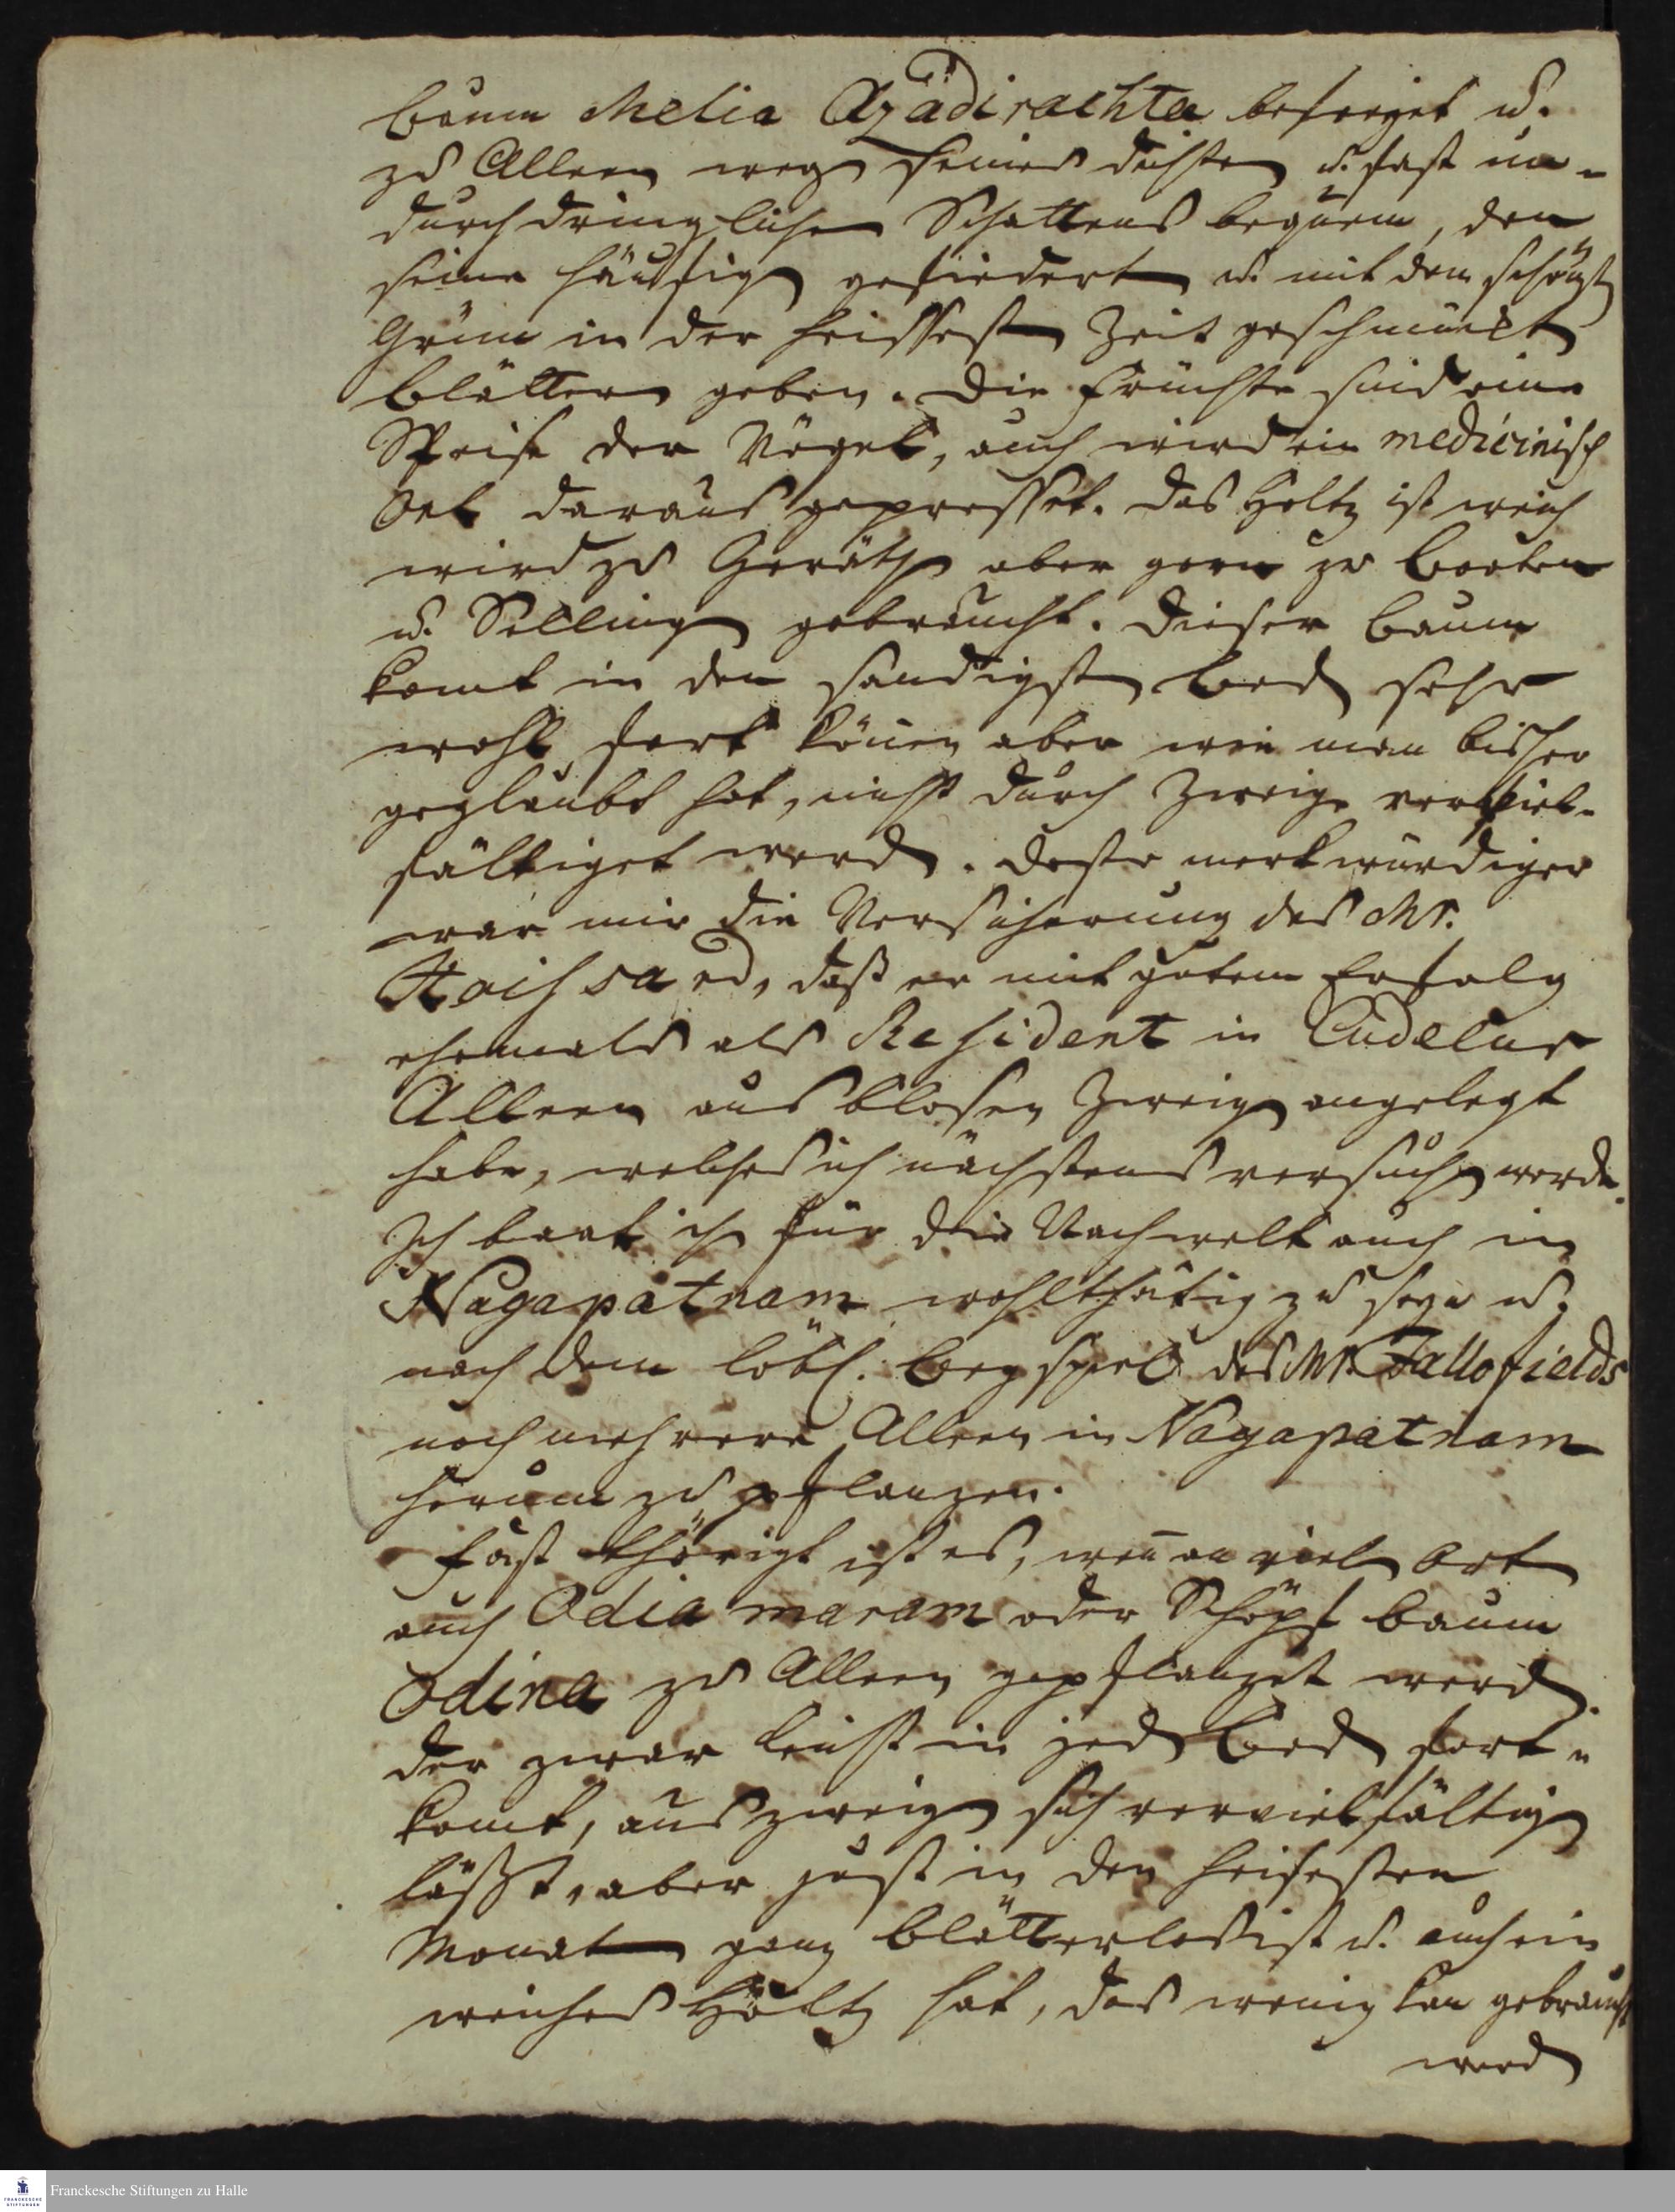 baum Melia Azädirachta besorget u.
zu Alleen weg seines dichten u. fast un-
durchdringlichen Schattens bequem, den
seine häufig gefiedert u. mit dem schönst
Grün in der heissesten Zeit geschmückt
Blätter geben. Die Früchte sind eine
Speise der Vögel, auch wird ein medicinisch
Oel daraus gepresset. Das Holtz ist weich
wird zu Geräth aber gern zu
u. gebraucht. Dieser Baum
komt in den sandigsten Bod sehr
wohl fort können aber wie man bisher
geglaubt hat, nicht durch Zweige verviel-
fältiget werd. Desto merkwürdiger
war mir die Versicherung des Mr.
daß er mit gutem Erfolg
ehemals als Resident in Cudelur
Alleen aus blosen Zweigen angelegt
habe, welches ich nächstens versuchen werde.
Ich baat ihn für die Nachwelt auch in
Nagapatnam wohlthätig zu seyn u.
nach dem löbl. Beyspiel des Mr. Fallofields
noch mehrere Alleen in Nagapatnam
herum zu pflanzen.
Fast thörigt ist es, wen an vielen Ort
auch Odia maram oder Schöps baum
Odina zu Alleen gepflanzet werd
der zwar leicht in jed Bod fort-
komt, aus Zweigen sich vervielfältig
läßt, aber just in den heisesten
Monat ganz blätterlos ist u. auch ein
weiches Holtz hat, das wenig kan gebraucht
werd
Franckesche Stiftungen zu Halle
FRANCKESCHE
STIFTUNGEN